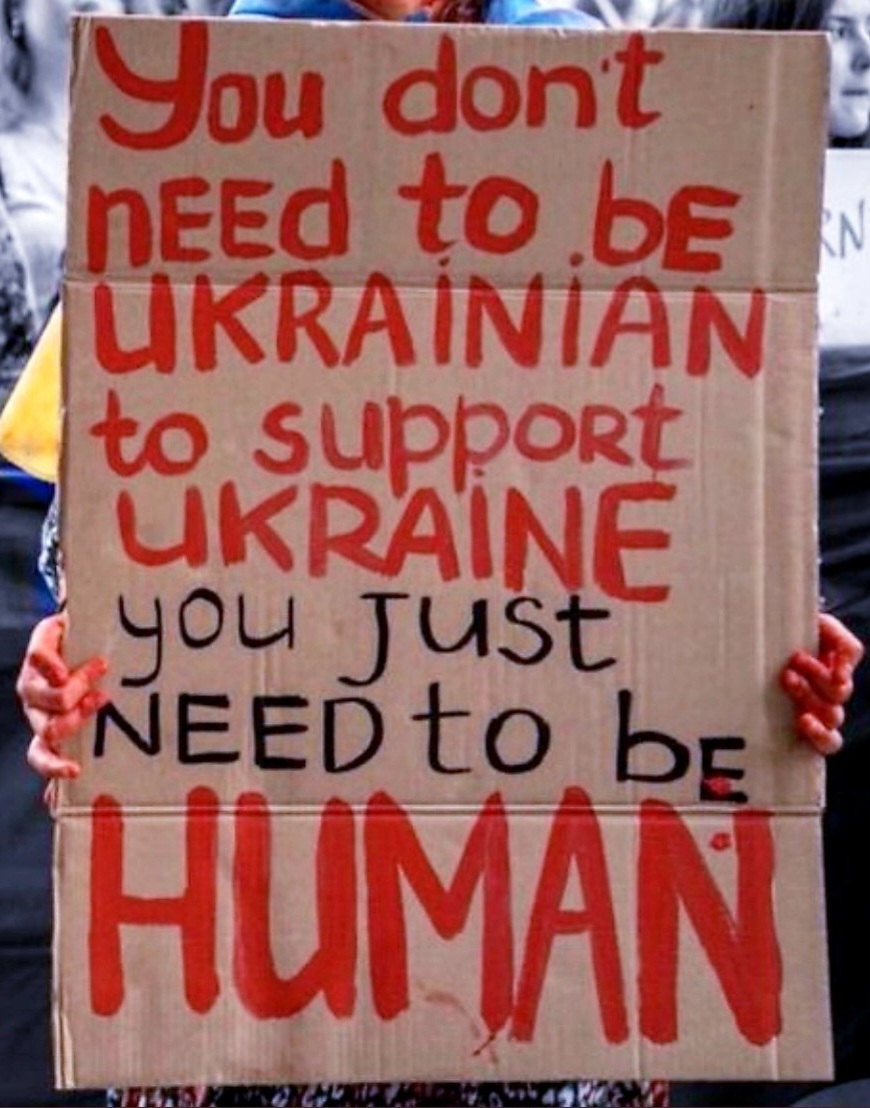 You don't
nEEd to bE
UKRAiNiAN
to suppoRt
UKRAiNE
you Just
NEED to bE
HUMAN
RN